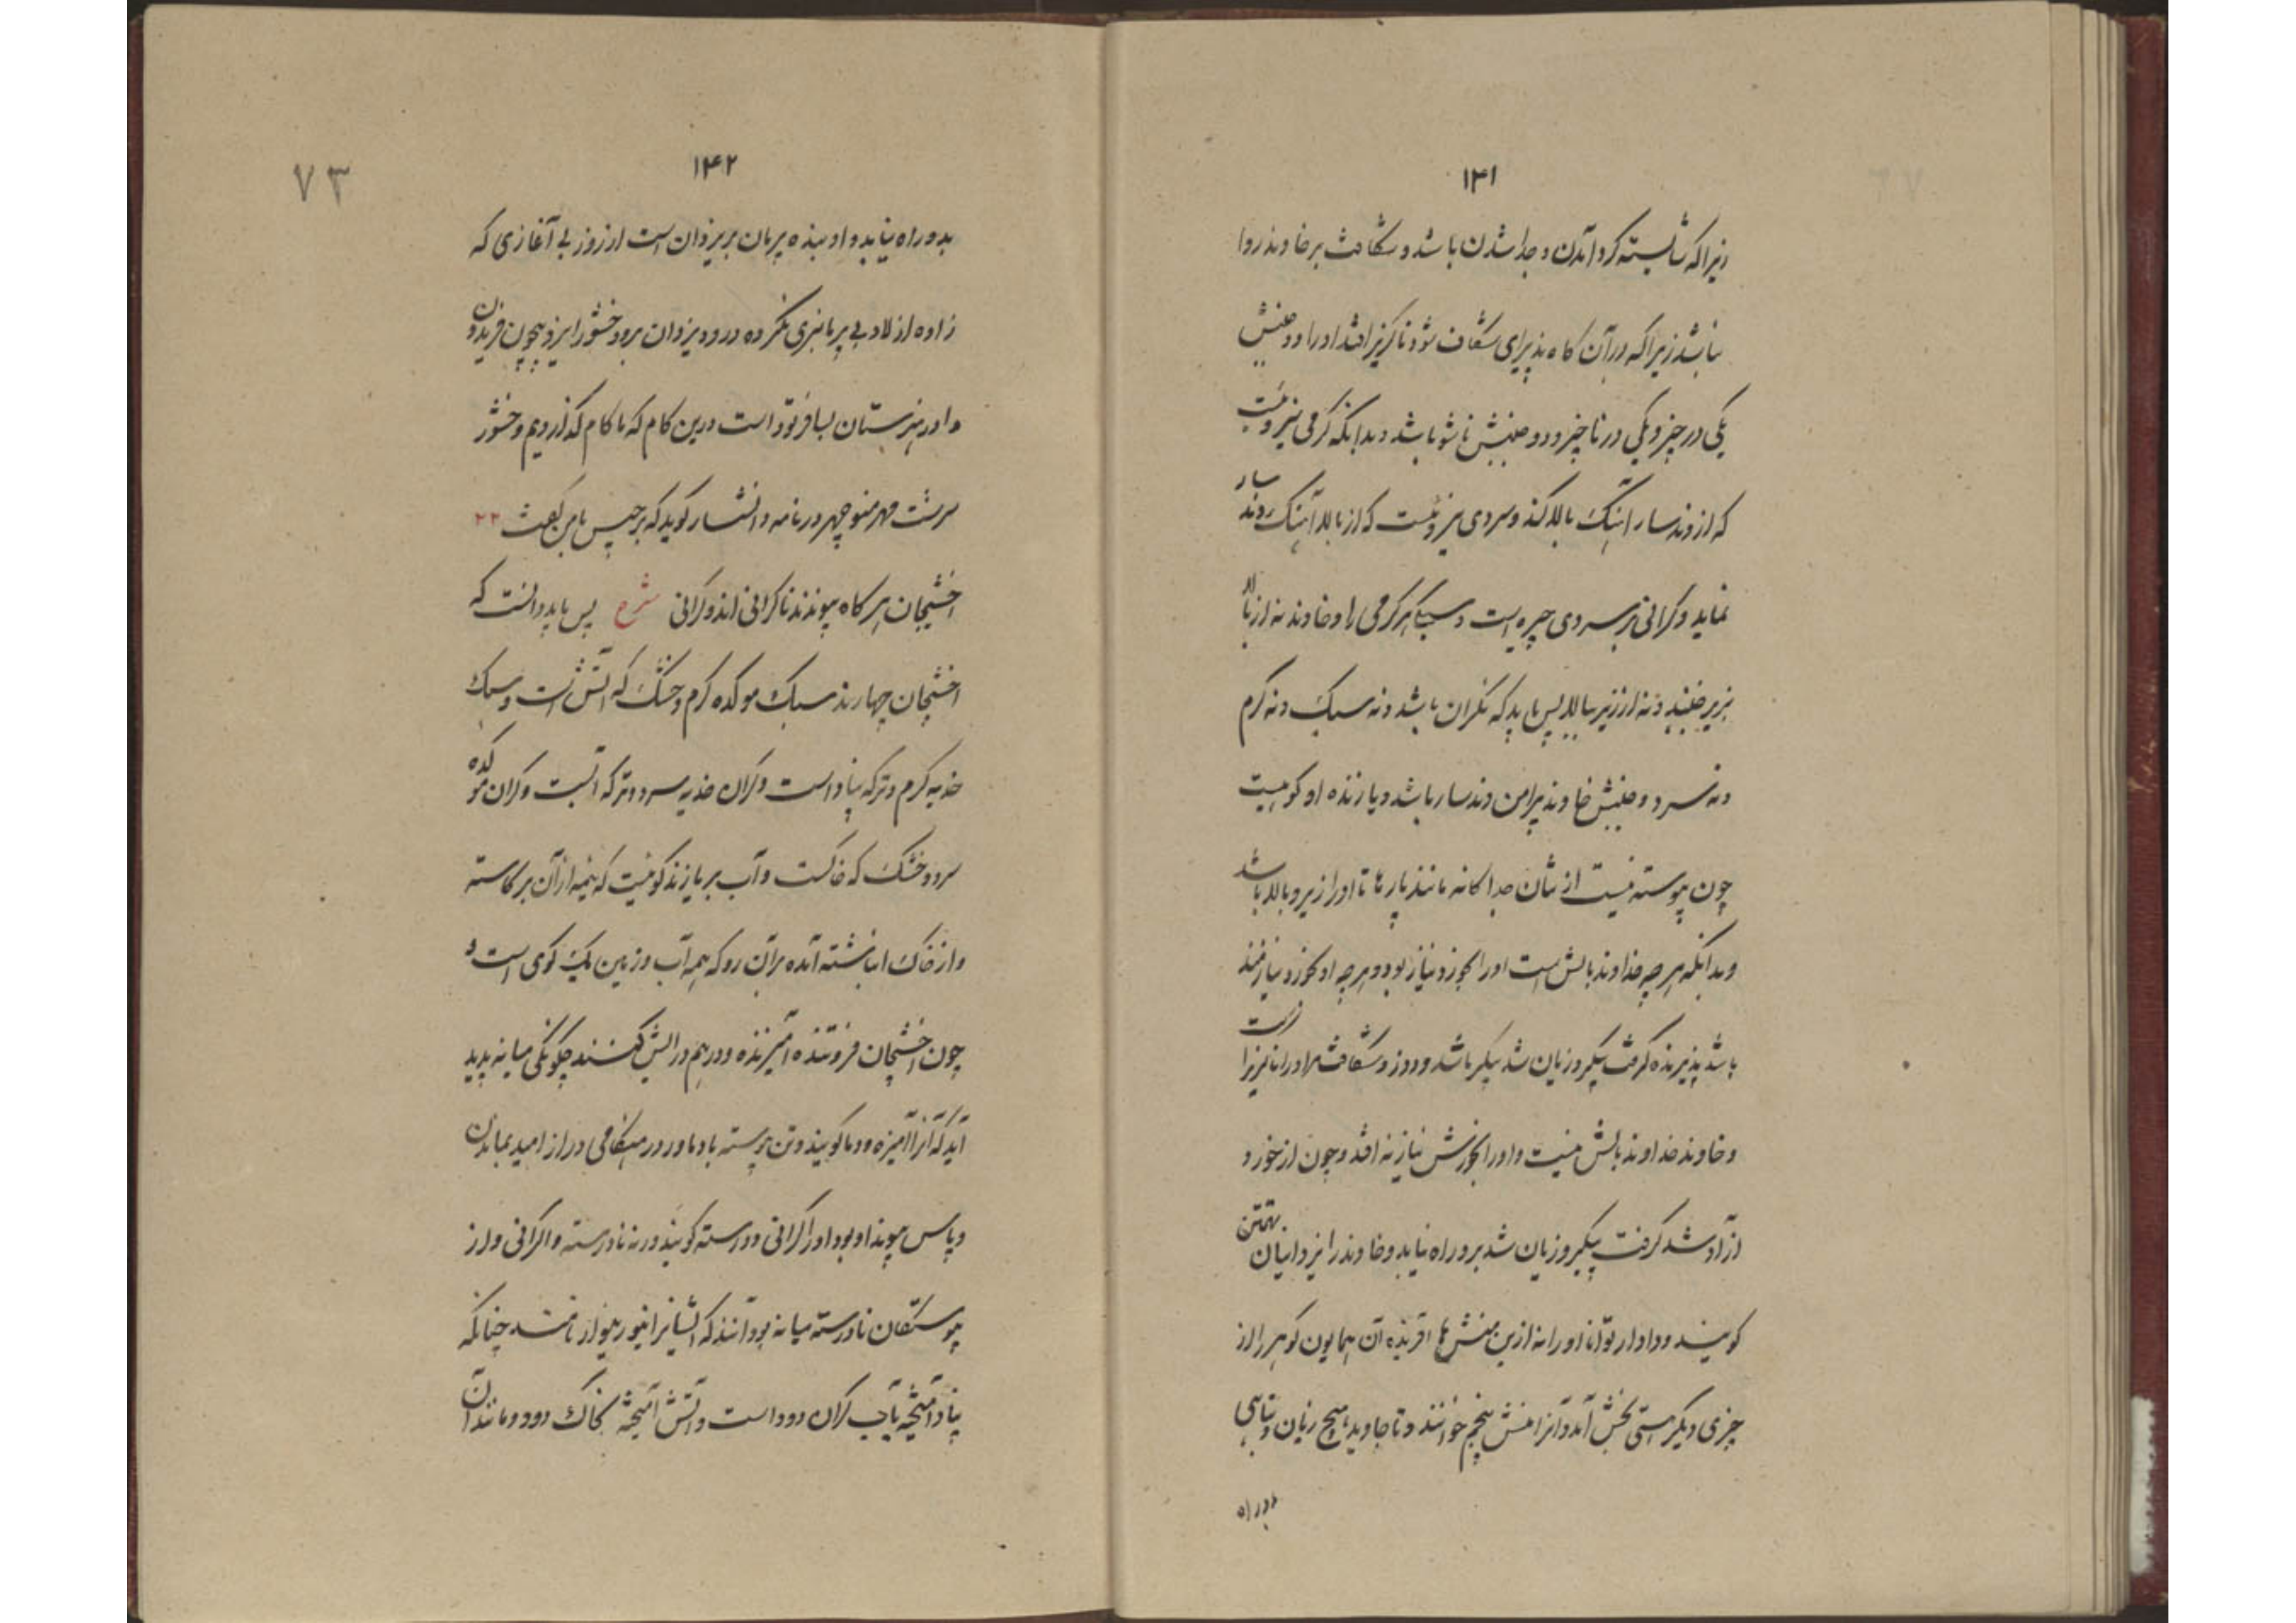 ۱۴۱
زیراکه شایسته کردآمدن و جداشدن باشد و شکافت برخاوند روا
نباشد زیراکه درآن کاه پذیرای شکاف شود ناکزیر افتد اورا دو جنبش
یکی در چیز و یکی در ناچیز و دو جنبش ناشو باشد و بدانکه کرمی نیروئیست
که از وندسار آهنک بالا کند و سردی نیروئیست که از بالا آهنک وندسار
نماید و کرانی بر سردی چیره است و سبکی بر کرمی را و خاوند نه از بالا
بزیر جنبد و نه از زیر ببالا پس باید که نه کران باشد و نه سبک و نه کرم
و نه سرد و جنبش خاوند پیرامن وندسار باشد و یازنده او کوهیست
چون پیوسته نیست از تنان جداکانه مانند پارها تا اورا زیر و بالا باشد
و بدانکه هرچه خداوند بالش است اورا بخورد نیاز بود و هرچه او بخورد نیازمند
باشد پذیرنده کرفت پیکر و زیان شد پیکر باشد و دوز و شکافت مر اورا ناکزیرا است
و خاوند خداوند بالش نیست و اورا بخورش نیاز نه افتد و چون از خورد
آزاد شد کرفت پیکر و زیان شد برو راه نیابد و خاوند را یزدانیان تهمتن
کویند و دادار توانا اورا نه ازین منش ها آفریده آن همایون کوهر را از
چیزی دیکر هستی بخش آمد و آنرا منش پنجم خوانند و تا جاوید هیچ زیان و تباهی
بدو راه
۱۴۲
۷۳
بدو راه نیابد و او بنده پرمان بر یزدان است از روز بی آغازی که
زاده از لاد بی پرمانبری نکرده درود یزدان برو وخشور ایزد همچون فریدون
و اورا هنرستان بسا فرنود است درین کام که ما کام کذاردیم وخشور
سرشت مهر منوچهر در نامه دانشسار کوید که برجیس بامن کفت ۲۲
اخشیجان هرکاه پیوندند ناکرانی اند و کرانی شرح پس باید دانست که
اخشیجان چهارند سبک موکده کرم و خشک که آتش است و سبک
خدیه کرم و تر که پناد است و کران خدیه سرد و تر که آبست و کران موکده
سرد و خشک که خاکست و آب بر یازند کوئیست که نیمه از آن برکاسته
و از خاک انباشته آمده برآن رو که همه آب و زمین یک کوی است و
چون اخشیجان فروتنده آمیزنده و درهم درایش کنند چکونکی میانه پدید
آید که آنرا آمیزه و دما کویند و تن پیوسته بادما در هنکامی دراز امید بماندن
و پاس پیوند او بود اورا کرانی و درسته کویند ورنه نادرسته و اکرانی و از
پیوستکان نادرسته میانه بودانند که ایشانرا نیور نیواز نامند چنانکه
پناد آمیخته بآب کران دود است و آتش آمیخته بخاک دود و مانند آن